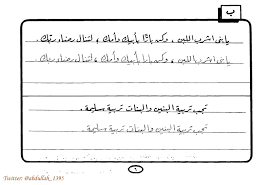 ب
يا بني اشرب اللبن ، وكن بارًا بأبيك وأمك ، لتنال رضا ربك .
يا بني اشرب اللبن ، وكن بارا بأبيك وأمك ، لتنال رضا ربك .
تجب تربية البنين والبنات تربية سليمة .
تجب تربية البنين والبنات تربية سليمة .
٦
Twitter: @abdullah_1395